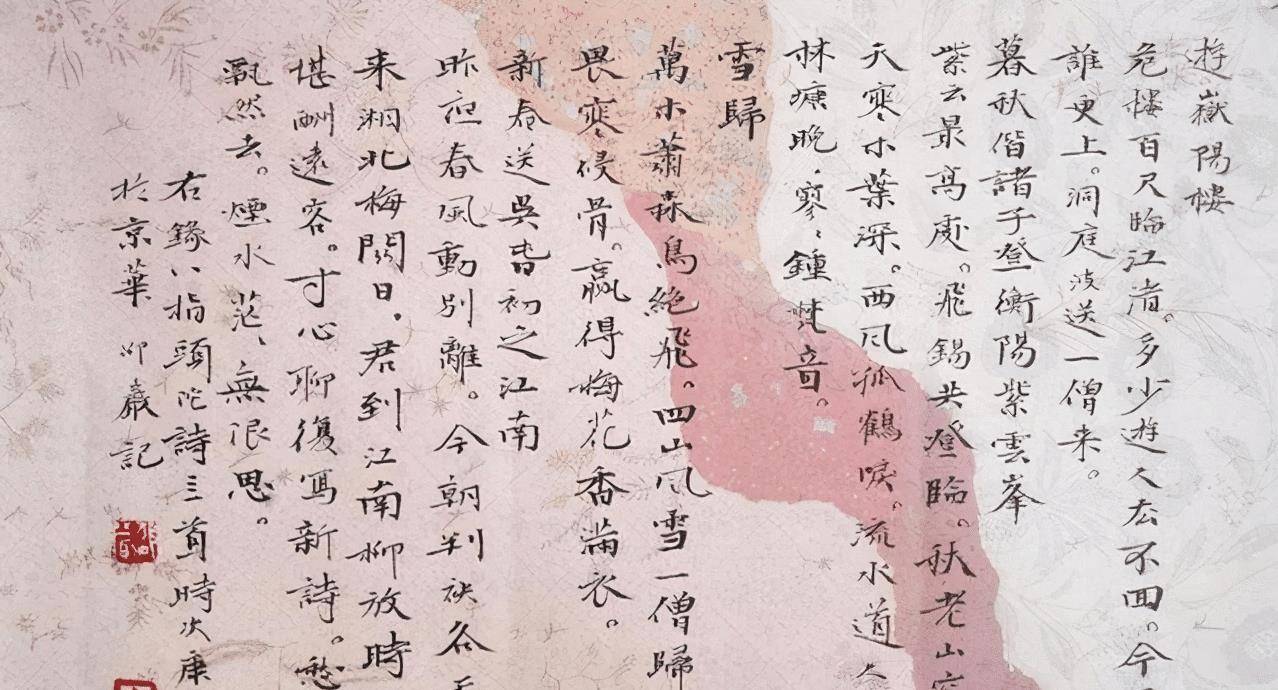 遊嶽陽樓
危樓百尺臨江渚。多少遊人去不回。今
誰更上。洞庭波送一僧来。
暮秋偕諸子登衡陽紫雲峯
紫云最高處。飛錫共登臨。秋老山
天寒木葉深。西风孤鶴唳。流水道人
林塘晚、寥〻鍾梵音。
雪歸
萬木蕭森鳥絶飛。四山风雪一僧歸
畏寒侵骨。贏得梅花香滿衣。
新春送吳耆初之江南
昨夜春風動別離。今朝判袂各
来湘北梅開日，君到江南柳放時
堪酬遠客。寸心聊復寫新詩。愁
飄然去。煙水茫〻無限思。
右錄八指頭陀詩三首時次庚
於京華 卯巖記